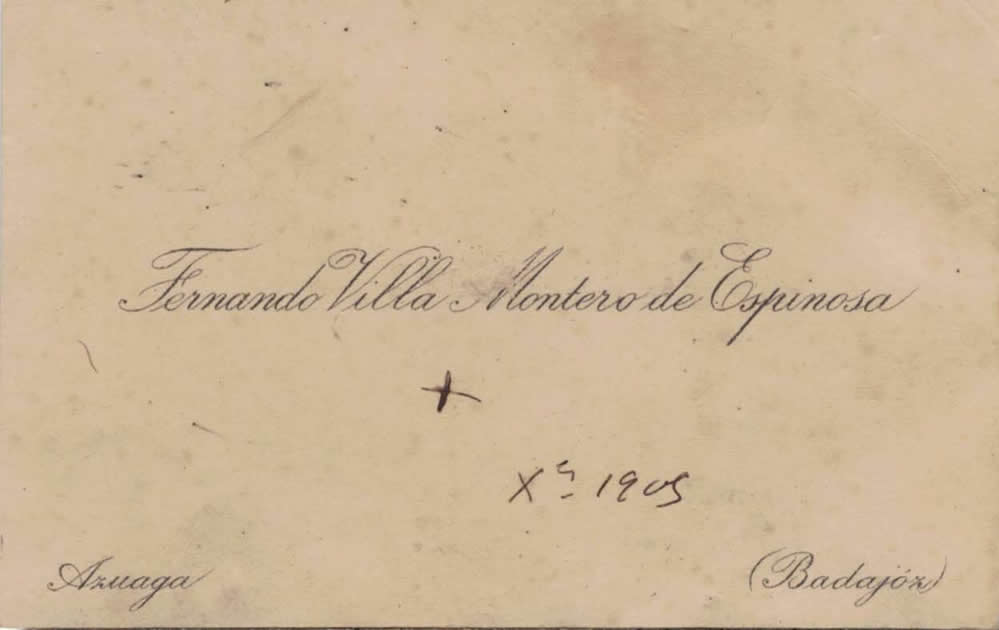 Fernando Villa Montero de Espinosa
+
Xᵉ 1905
Azuaga (Badajóz)